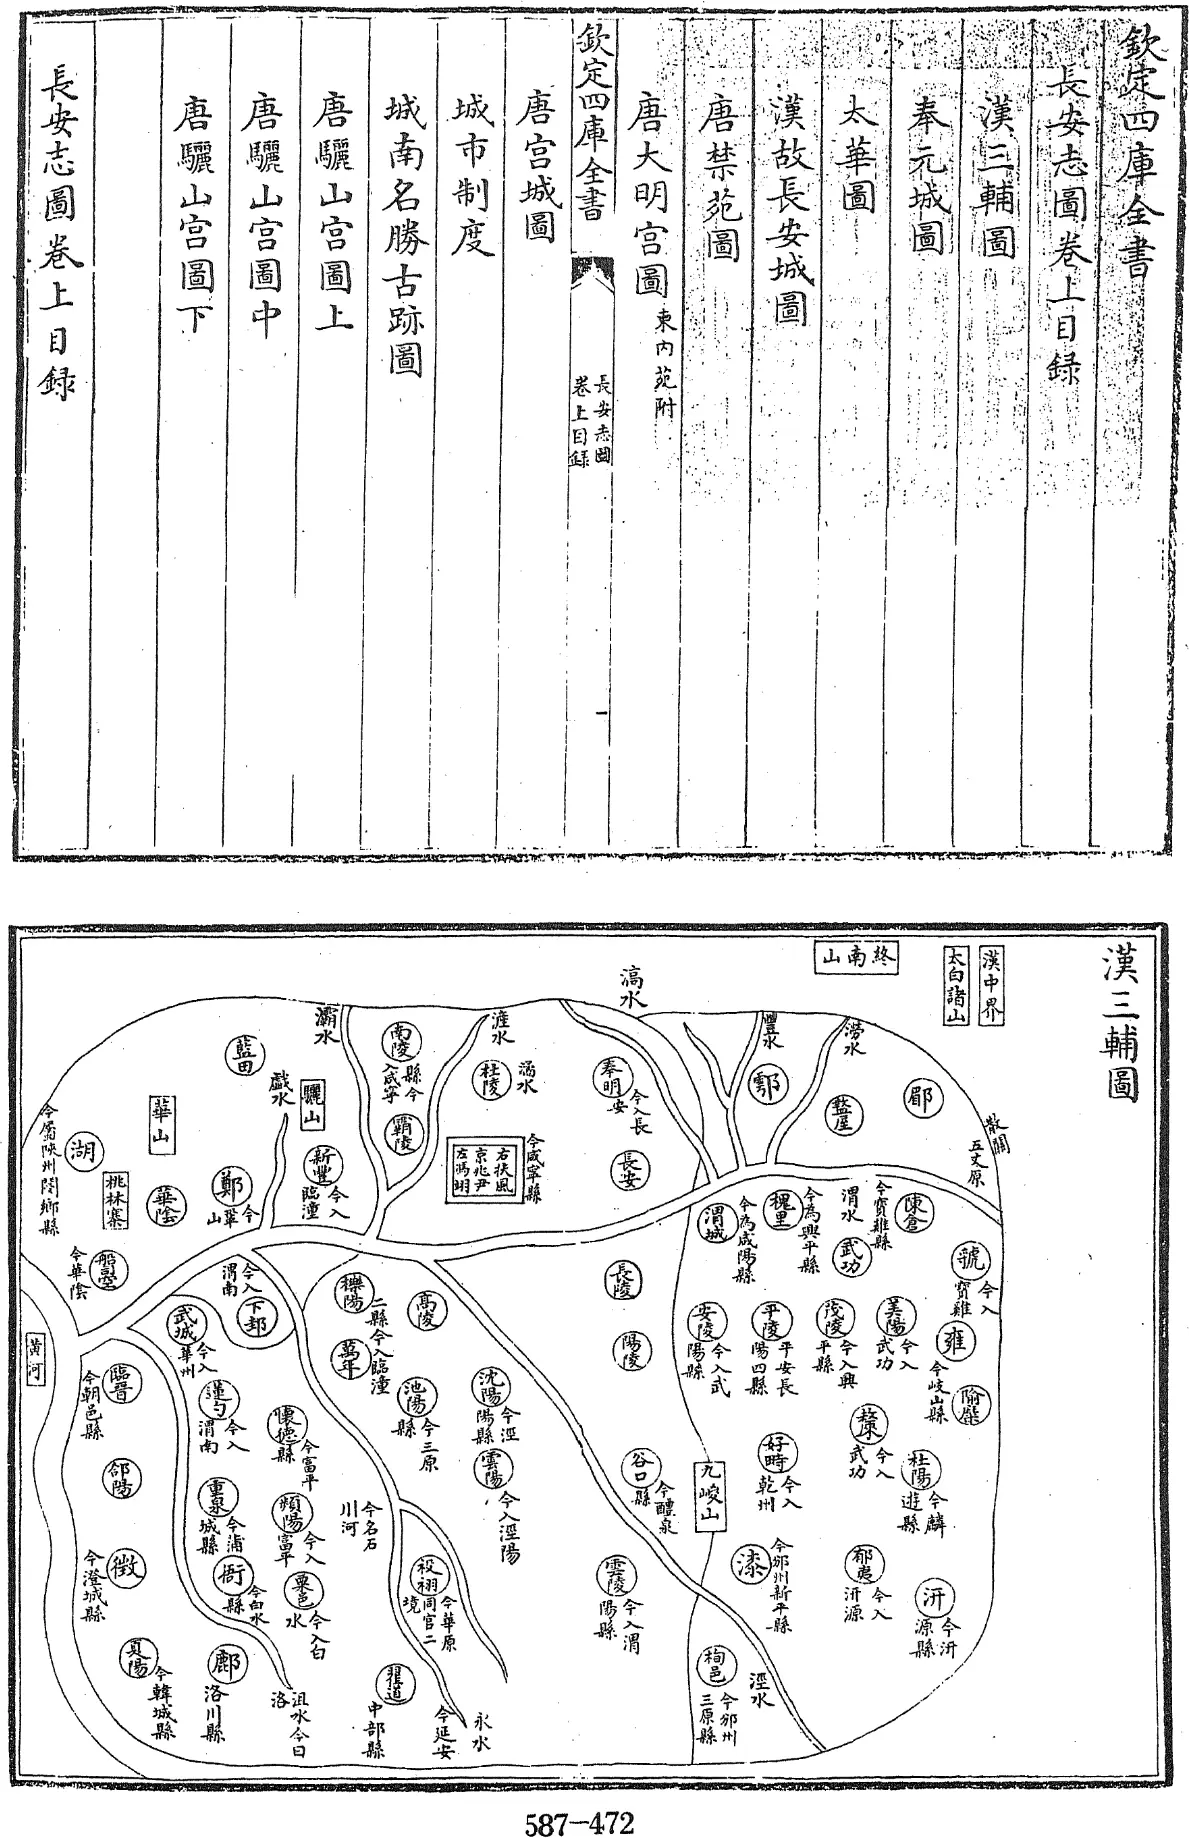 欽定四庫全書
長安志圖卷上目録
漢三輔圖
奉元城圖
太華圖
漢故長安城圖
唐禁苑圖
唐大明宫圖 東内苑附
欽定四庫全書
長安志圖
卷上目録
唐宫城圖
城市制度
城南名勝古跡圖
唐驪山宫圖上
唐驪山宫圖中
唐驪山宫圖下
長安志圖卷上目録
漢三輔圖
漢中界
太白諸山
終南山
散關
五丈原
郿
澇水
盩厔
豐水
鄠
滈水
奉明
今入長安
長安
滻水
杜陵
潏水
今咸寧縣
右扶風
京兆尹
左馮翊
南陵
縣今入咸寧
霸陵
灞水
驪山
新豐
今入臨潼
戲水
藍田
華山
鄭
今華山
華陰
桃林塞
湖
今屬陝州閿鄉縣
船司空
今華陰
黄河
陳倉
今寶雞縣
渭水
武功
槐里
今為興平縣
渭城
今為咸陽縣
虢
今入寶雞
雍
今岐山縣
隃麋
美陽
今入武功
茂陵
今入興平縣
平陵
平安長陽四縣
安陵
今入武陽縣
長陵
陽陵
高陵
櫟陽
萬年
二縣今入臨潼
下邽
今入渭南
武城
今入華州
臨晉
今朝邑縣
蓮勺
今入渭南
懷德縣
今富平
池陽縣
今三原
沈陽
今涇陽縣
雲陽
今入涇陽
谷口縣
今醴泉
九嵕山
好畤
今入乾州
斄
今入武功
杜陽
今麟遊縣
郃陽
重泉
今蒲城縣
頻陽
今入富平
今名石川河
祋祤
今華原同官二境
雲陵
今入渭陽縣
漆
今邠州新平縣
郁夷
今入汧源
汧
今汧源縣
徵
今澄城縣
衙
今白水縣
粟邑
今入白水
夏陽
今韓城縣
鄜
洛川縣
沮水今曰洛
翟道
中部縣
今延安
栒邑
今邠州三原縣
涇水
587-472